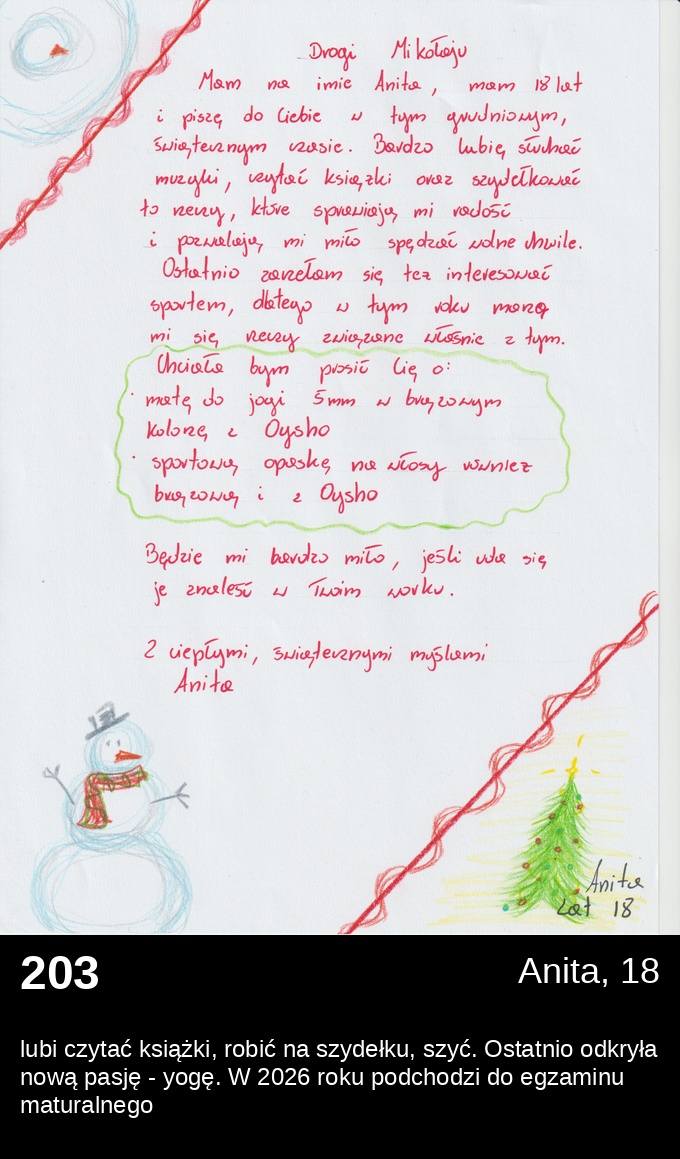 Drogi Mikołaju
Mam na imie Anita, mam 18 lat
i piszę do Ciebie w tym grudniowym,
świątecznym czasie. Bardzo lubię słuchać
muzyki, czytać książki oraz szydełkować
to rzeczy, które sprawiają mi radość
i pozwalają mi miło spędzać wolne chwile.
Ostatnio zaczęłam się też interesować
sportem, dlatego w tym roku marzą
mi się rzeczy związane właśnie z tym.
Chciała bym prosić Cię o:
· matę do jogi 5mm w brązowym
kolorzę z Oysho
· sportową opaskę na włosy również
brązową i z Oysho
Będzie mi bardzo miło, jeśli uda się
je znaleść w Twoim worku.
Z ciepłymi, świątecznymi myślami
Anita
Anita
Lat 18
203
Anita, 18
lubi czytać książki, robić na szydełku, szyć. Ostatnio odkryła
nową pasję - yogę. W 2026 roku podchodzi do egzaminu
maturalnego